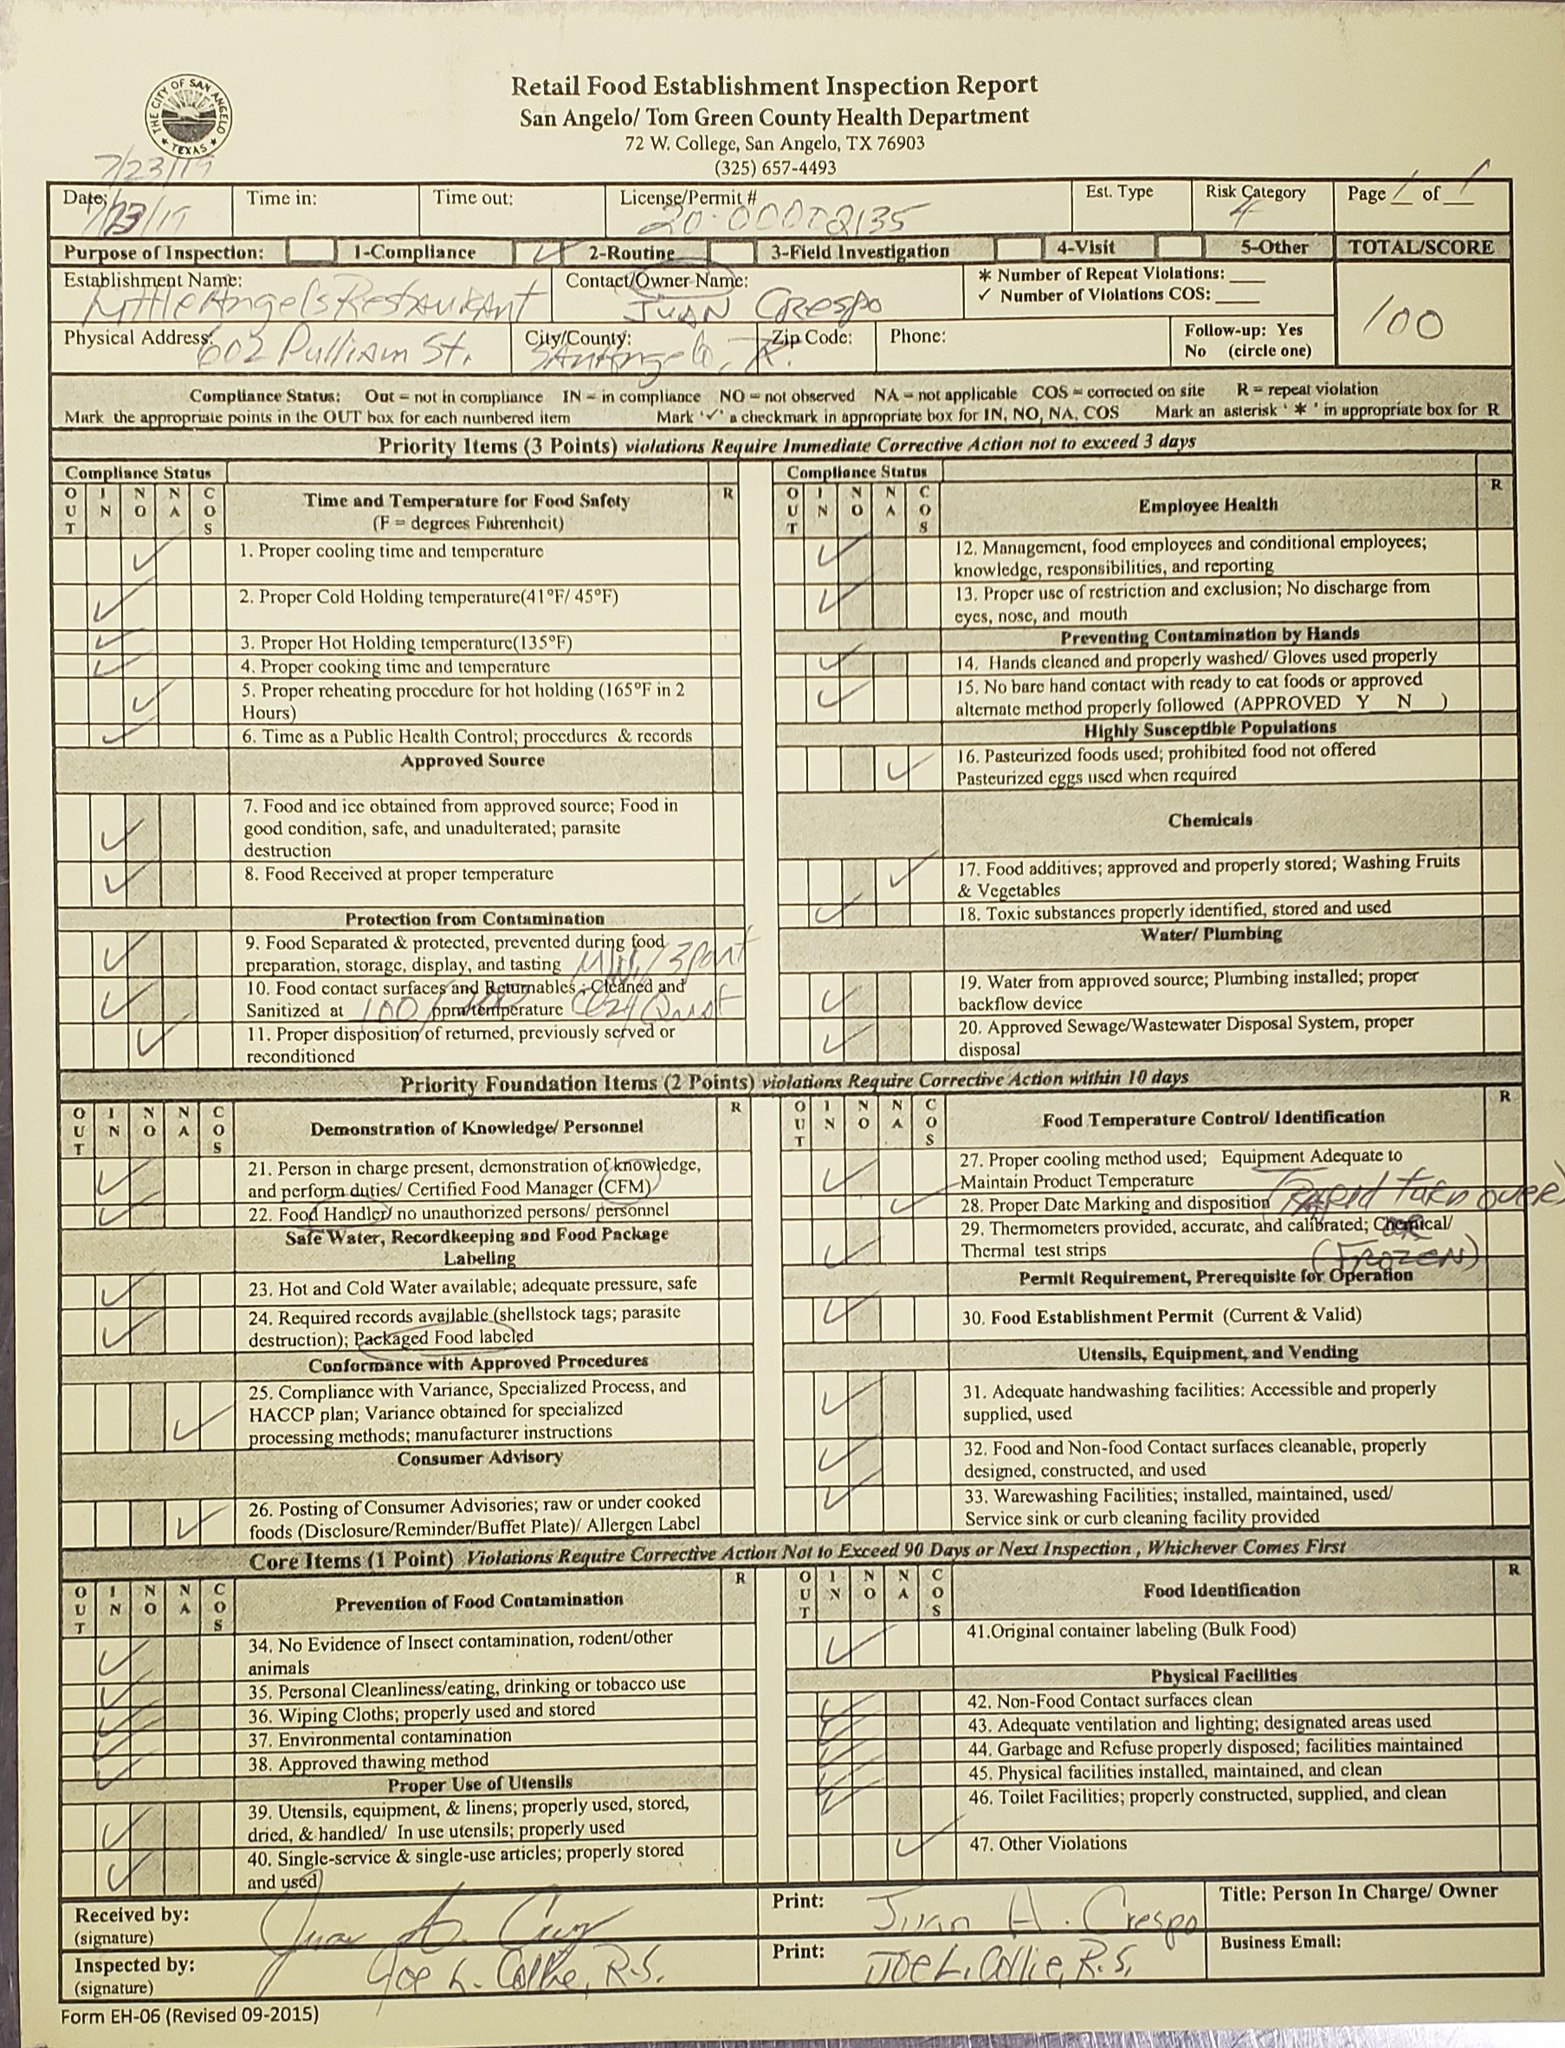 THE CITY OF SAN ANGELO
TEXAS
Retail Food Establishment Inspection Report
San Angelo/ Tom Green County Health Department
72 W. College, San Angelo, TX 76903
(325) 657-4493
7/23/19
Date: 7/23/19 Time in: Time out: License/Permit # 20-00002135 Est. Type Risk Category 4 Page 1 of 1
Purpose of Inspection: 1-Compliance ✓ 2-Routine 3-Field Investigation 4-Visit 5-Other TOTAL/SCORE
Establishment Name: Contact/Owner Name: * Number of Repeat Violations: ___
Little Angels Restaurant Juan Crespo ✓ Number of Violations COS: ___
100
Physical Address: 602 Pulliam St. City/County: San Angelo, Tx. Zip Code: Phone: Follow-up: Yes
No (circle one)
Compliance Status: Out = not in compliance IN = in compliance NO = not observed NA = not applicable COS = corrected on site R = repeat violation
Mark the appropriate points in the OUT box for each numbered item Mark '✓' a checkmark in appropriate box for IN, NO, NA, COS Mark an asterisk ' * ' in appropriate box for R
Priority Items (3 Points) violations Require Immediate Corrective Action not to exceed 3 days
Compliance Status
OUT IN NO NA COS Time and Temperature for Food Safety R
(F = degrees Fahrenheit)
1. Proper cooling time and temperature
2. Proper Cold Holding temperature(41°F/ 45°F)
3. Proper Hot Holding temperature(135°F)
4. Proper cooking time and temperature
5. Proper reheating procedure for hot holding (165°F in 2
Hours)
6. Time as a Public Health Control; procedures & records
Approved Source
7. Food and ice obtained from approved source; Food in
good condition, safe, and unadulterated; parasite
destruction
8. Food Received at proper temperature
Protection from Contamination
9. Food Separated & protected, prevented during food
preparation, storage, display, and tasting
10. Food contact surfaces and Returnables ; Cleaned and
Sanitized at 100/200 ppm/temperature
11. Proper disposition of returned, previously served or
reconditioned
Compliance Status
OUT IN NO NA COS Employee Health R
12. Management, food employees and conditional employees;
knowledge, responsibilities, and reporting
13. Proper use of restriction and exclusion; No discharge from
eyes, nose, and mouth
Preventing Contamination by Hands
14. Hands cleaned and properly washed/ Gloves used properly
15. No bare hand contact with ready to eat foods or approved
alternate method properly followed (APPROVED Y N )
Highly Susceptible Populations
16. Pasteurized foods used; prohibited food not offered
Pasteurized eggs used when required
Chemicals
17. Food additives; approved and properly stored; Washing Fruits
& Vegetables
18. Toxic substances properly identified, stored and used
Water/ Plumbing
19. Water from approved source; Plumbing installed; proper
backflow device
20. Approved Sewage/Wastewater Disposal System, proper
disposal
Priority Foundation Items (2 Points) violations Require Corrective Action within 10 days
OUT IN NO NA COS Demonstration of Knowledge/ Personnel R
21. Person in charge present, demonstration of knowledge,
and perform duties/ Certified Food Manager (CFM)
22. Food Handler/ no unauthorized persons/ personnel
Safe Water, Recordkeeping and Food Package
Labeling
23. Hot and Cold Water available; adequate pressure, safe
24. Required records available (shellstock tags; parasite
destruction); Packaged Food labeled
Conformance with Approved Procedures
25. Compliance with Variance, Specialized Process, and
HACCP plan; Variance obtained for specialized
processing methods; manufacturer instructions
Consumer Advisory
26. Posting of Consumer Advisories; raw or under cooked
foods (Disclosure/Reminder/Buffet Plate)/ Allergen Label
OUT IN NO NA COS Food Temperature Control/ Identification R
27. Proper cooling method used; Equipment Adequate to
Maintain Product Temperature
28. Proper Date Marking and disposition Rapid turn over
29. Thermometers provided, accurate, and calibrated; Chemical/ OR
Thermal test strips (FROZEN)
Permit Requirement, Prerequisite for Operation
30. Food Establishment Permit (Current & Valid)
Utensils, Equipment, and Vending
31. Adequate handwashing facilities: Accessible and properly
supplied, used
32. Food and Non-food Contact surfaces cleanable, properly
designed, constructed, and used
33. Warewashing Facilities; installed, maintained, used/
Service sink or curb cleaning facility provided
Core Items (1 Point) Violations Require Corrective Action Not to Exceed 90 Days or Next Inspection , Whichever Comes First
OUT IN NO NA COS Prevention of Food Contamination R
34. No Evidence of Insect contamination, rodent/other
animals
35. Personal Cleanliness/eating, drinking or tobacco use
36. Wiping Cloths; properly used and stored
37. Environmental contamination
38. Approved thawing method
Proper Use of Utensils
39. Utensils, equipment, & linens; properly used, stored,
dried, & handled/ In use utensils; properly used
40. Single-service & single-use articles; properly stored
and used
OUT IN NO NA COS Food Identification R
41.Original container labeling (Bulk Food)
Physical Facilities
42. Non-Food Contact surfaces clean
43. Adequate ventilation and lighting; designated areas used
44. Garbage and Refuse properly disposed; facilities maintained
45. Physical facilities installed, maintained, and clean
46. Toilet Facilities; properly constructed, supplied, and clean
47. Other Violations
Received by: Print: Juan A. Crespo Title: Person In Charge/ Owner
(signature)
Inspected by: Joe L. Collie, R.S. Print: Joe L. Collie, R.S. Business Email:
(signature)
Form EH-06 (Revised 09-2015)